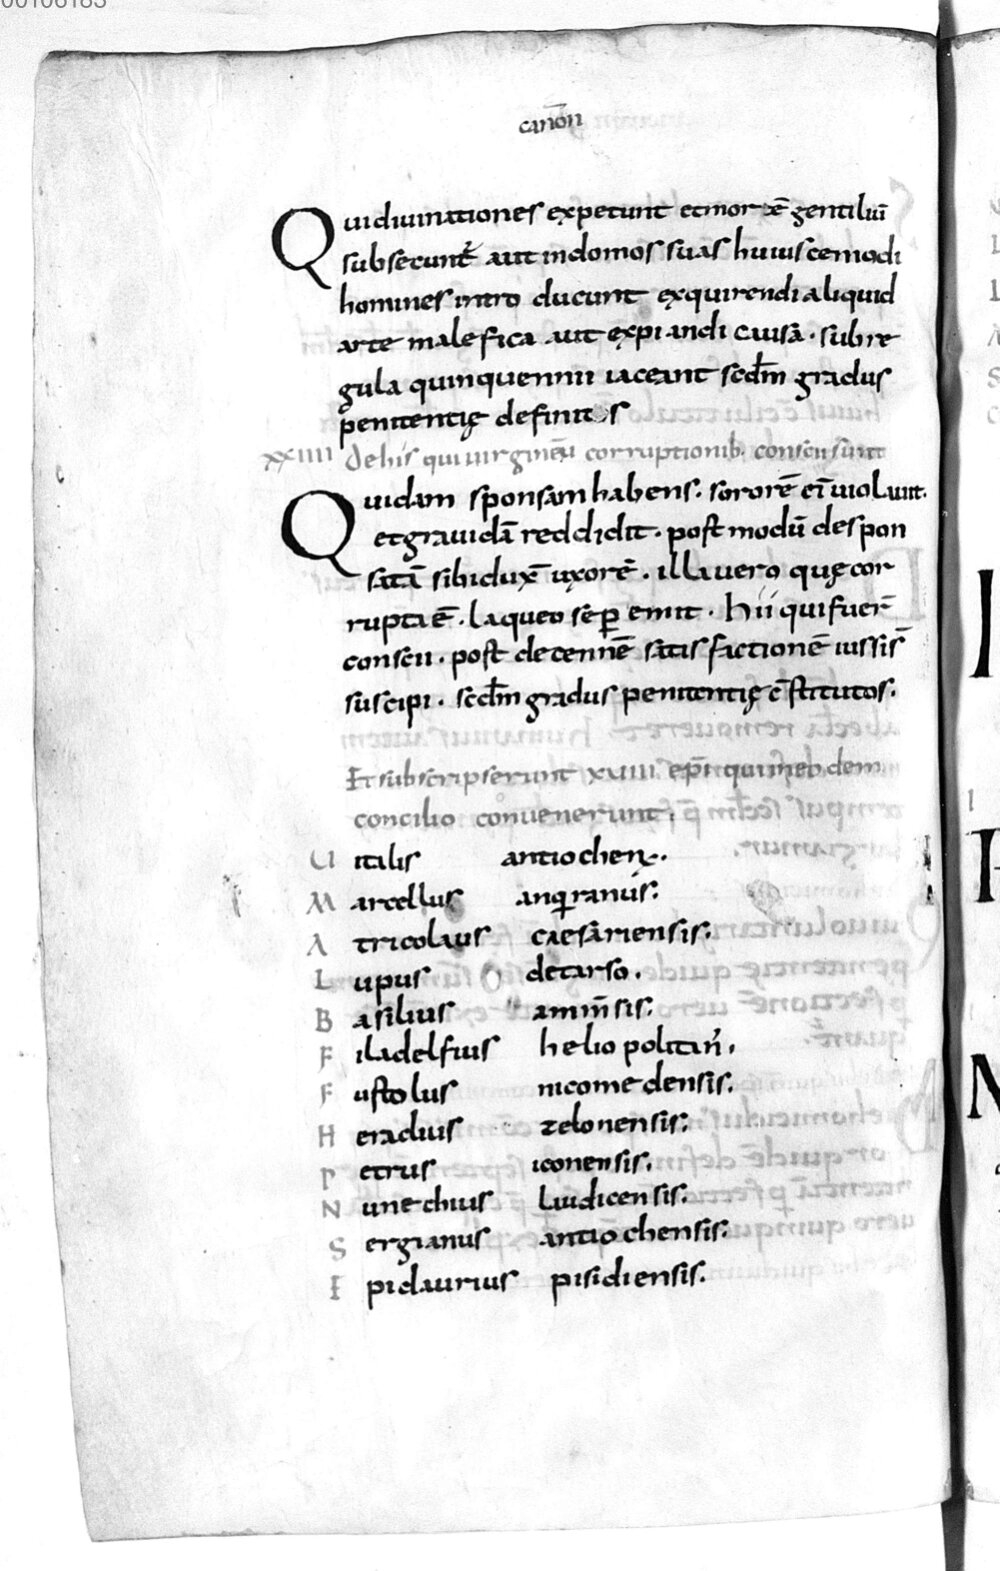 00106183
canōn
Qui diuinationes expetunt et morē gentiliū
subsecunt̄ aut in domos suas huiuscemodi
homines intro ducunt exquirendi aliquid
arte malefica aut expiandi causā · sub re
gula quinquennii iaceant scd̄m gradus
penitentię definitos
xxiiii de his qui uirginēū corruptionib; conscii sunt
Quidam sponsam habens · sororē ei᷒ uiolauit ·
et grauidā reddidit · post modū despon
satā sibi duxē uxorē · illa uero quę cor
rupta ē · laqueo se ꝑemit · hii qui fuer̄
conscii · post decennē satisfactionē iussi s̄
suscipi · scd̄m gradus penitentię c̄stitutos ·
Et subscripserunt xuiiii ep̄i qui in eodem
concilio conuenerunt ·
Uitalis antiochen̄ ·
Marcellus anqiranus:
Atricolaus caesariensis:
Lupus de tarso ·
Basilius amin̄sis:
Filadelfius heliopolitan̄ ·
Fustolus nicomedensis:
Heraclius zelonensis:
Petrus iconensis:
Nunechius laudicensis:
Sergianus antiochensis:
Epidaurius pisidiensis: